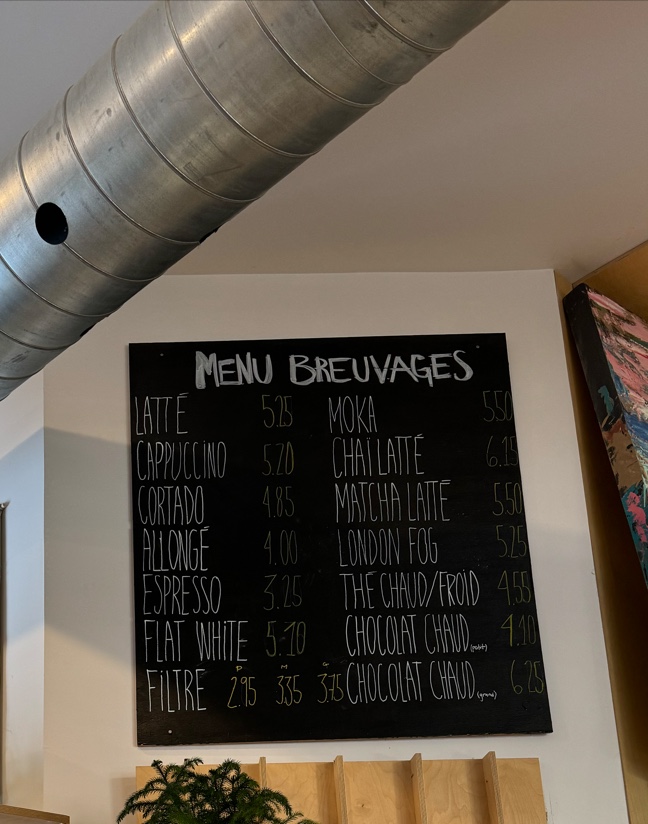 MENU BREUVAGES
LATTÉ 5.25
CAPPUCCINO 5.20
CORTADO 4.85
ALLONGÉ 4.00
ESPRESSO 3.25
FLAT WHITE 5.10
P M G
FILTRE 2.95 3.35 3.75
MOKA 5.50
CHAÏ LATTÉ 6.15
MATCHA LATTÉ 5.50
LONDON FOG 5.25
THÉ CHAUD/FROID 4.55
CHOCOLAT CHAUD (petit) 4.10
CHOCOLAT CHAUD (grand) 6.25